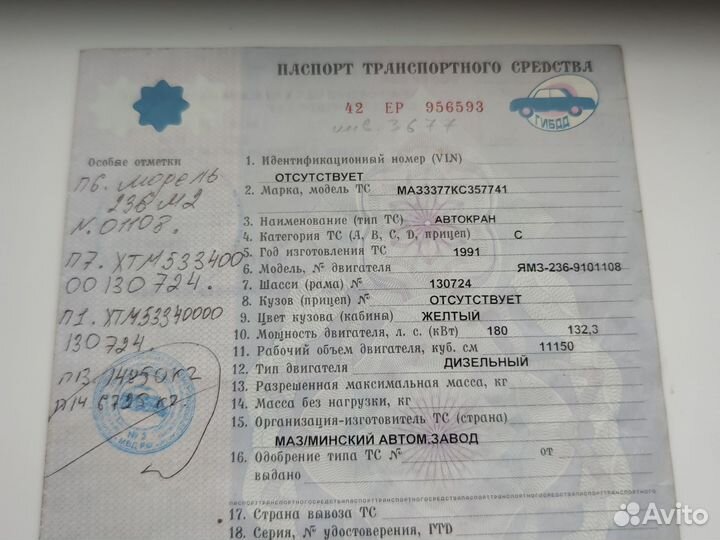 ПАСПОРТ ТРАНСПОРТНОГО СРЕДСТВА
42 ЕР 956593
ГИБДД
инв. 3677
Особые отметки
п6. модель
236М2
N.01108.
П7. ХТМ533400
00130724.
П1. ХТМ53340000
130724.
п13. 14250 кг
п14 6725 кг.
1. Идентификационный номер (VIN)
ОТСУТСТВУЕТ
2. Марка, модель ТС МАЗ3377КС357741
3. Наименование (тип ТС) АВТОКРАН
4. Категория ТС (A, B, C, D, прицеп) C
5. Год изготовления ТС 1991
6. Модель, № двигателя ЯМЗ-236-9101108
7. Шасси (рама) № 130724
8. Кузов (прицеп) № ОТСУТСТВУЕТ
9. Цвет кузова (кабины) ЖЕЛТЫЙ
10. Мощность двигателя, л. с. (кВт) 180 132,3
11. Рабочий объем двигателя, куб. см 11150
12. Тип двигателя ДИЗЕЛЬНЫЙ
13. Разрешенная максимальная масса, кг
14. Масса без нагрузки, кг
15. Организация-изготовитель ТС (страна)
МАЗ/МИНСКИЙ АВТОМ.ЗАВОД
16. Одобрение типа ТС № от
выдано
ПАСПОРТТРАНСПОРТНОГОСРЕДСТВАПАСПОРТТРАНСПОРТНОГОСРЕДСТВАПАСПОРТТРАНСПОРТНОГОСРЕДСТВА
17. Страна вывоза ТС
18. Серия, № удостоверения, ГТД
Avito